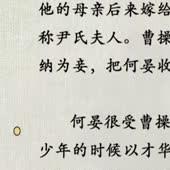 他的母亲后来嫁给
称尹氏夫人。曹操
纳为妾，把何晏收
何晏很受曹操
少年的时候以才华